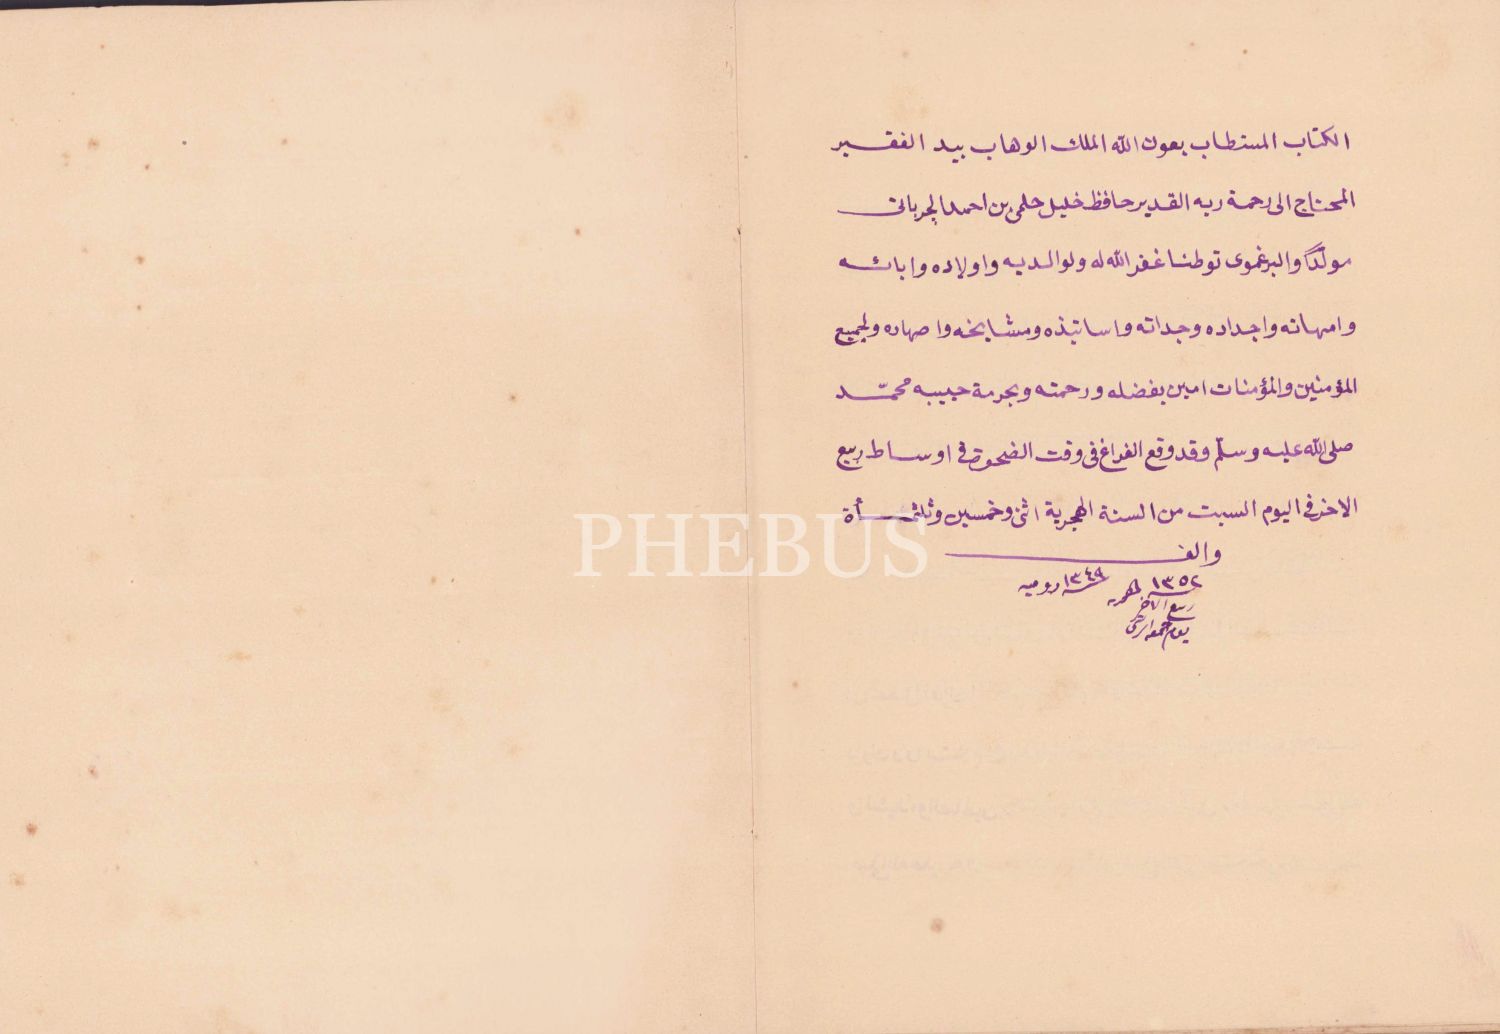 الكتاب المستطاب بعون الله الملك الوهاب بيد الفقير
المحتاج الى رحمة ربه القدير حافظ خليل حلمى بن احمد
مولدًا والبرغموى توطنا غفر الله له ولوالديه واولاده وابائه
وامهاته واجداده وجداته واساتيذه ومشايخه واصهاره ولجميع
المؤمنين والمؤمنات امين بفضله ورحمته وبحرمة حبيبه محمّد
صلى الله عليه وسلّم وقد وقع الفراغ فى وقت الضحوة فى اوساط ربيع
الاخر فى اليوم السبت من السنة الهجرية اثنى وخمسين وثلثمأة
والف
١٣٥٢ ١٣٤٩ روميه
ربيع الاخر
يوم
PHEBUS